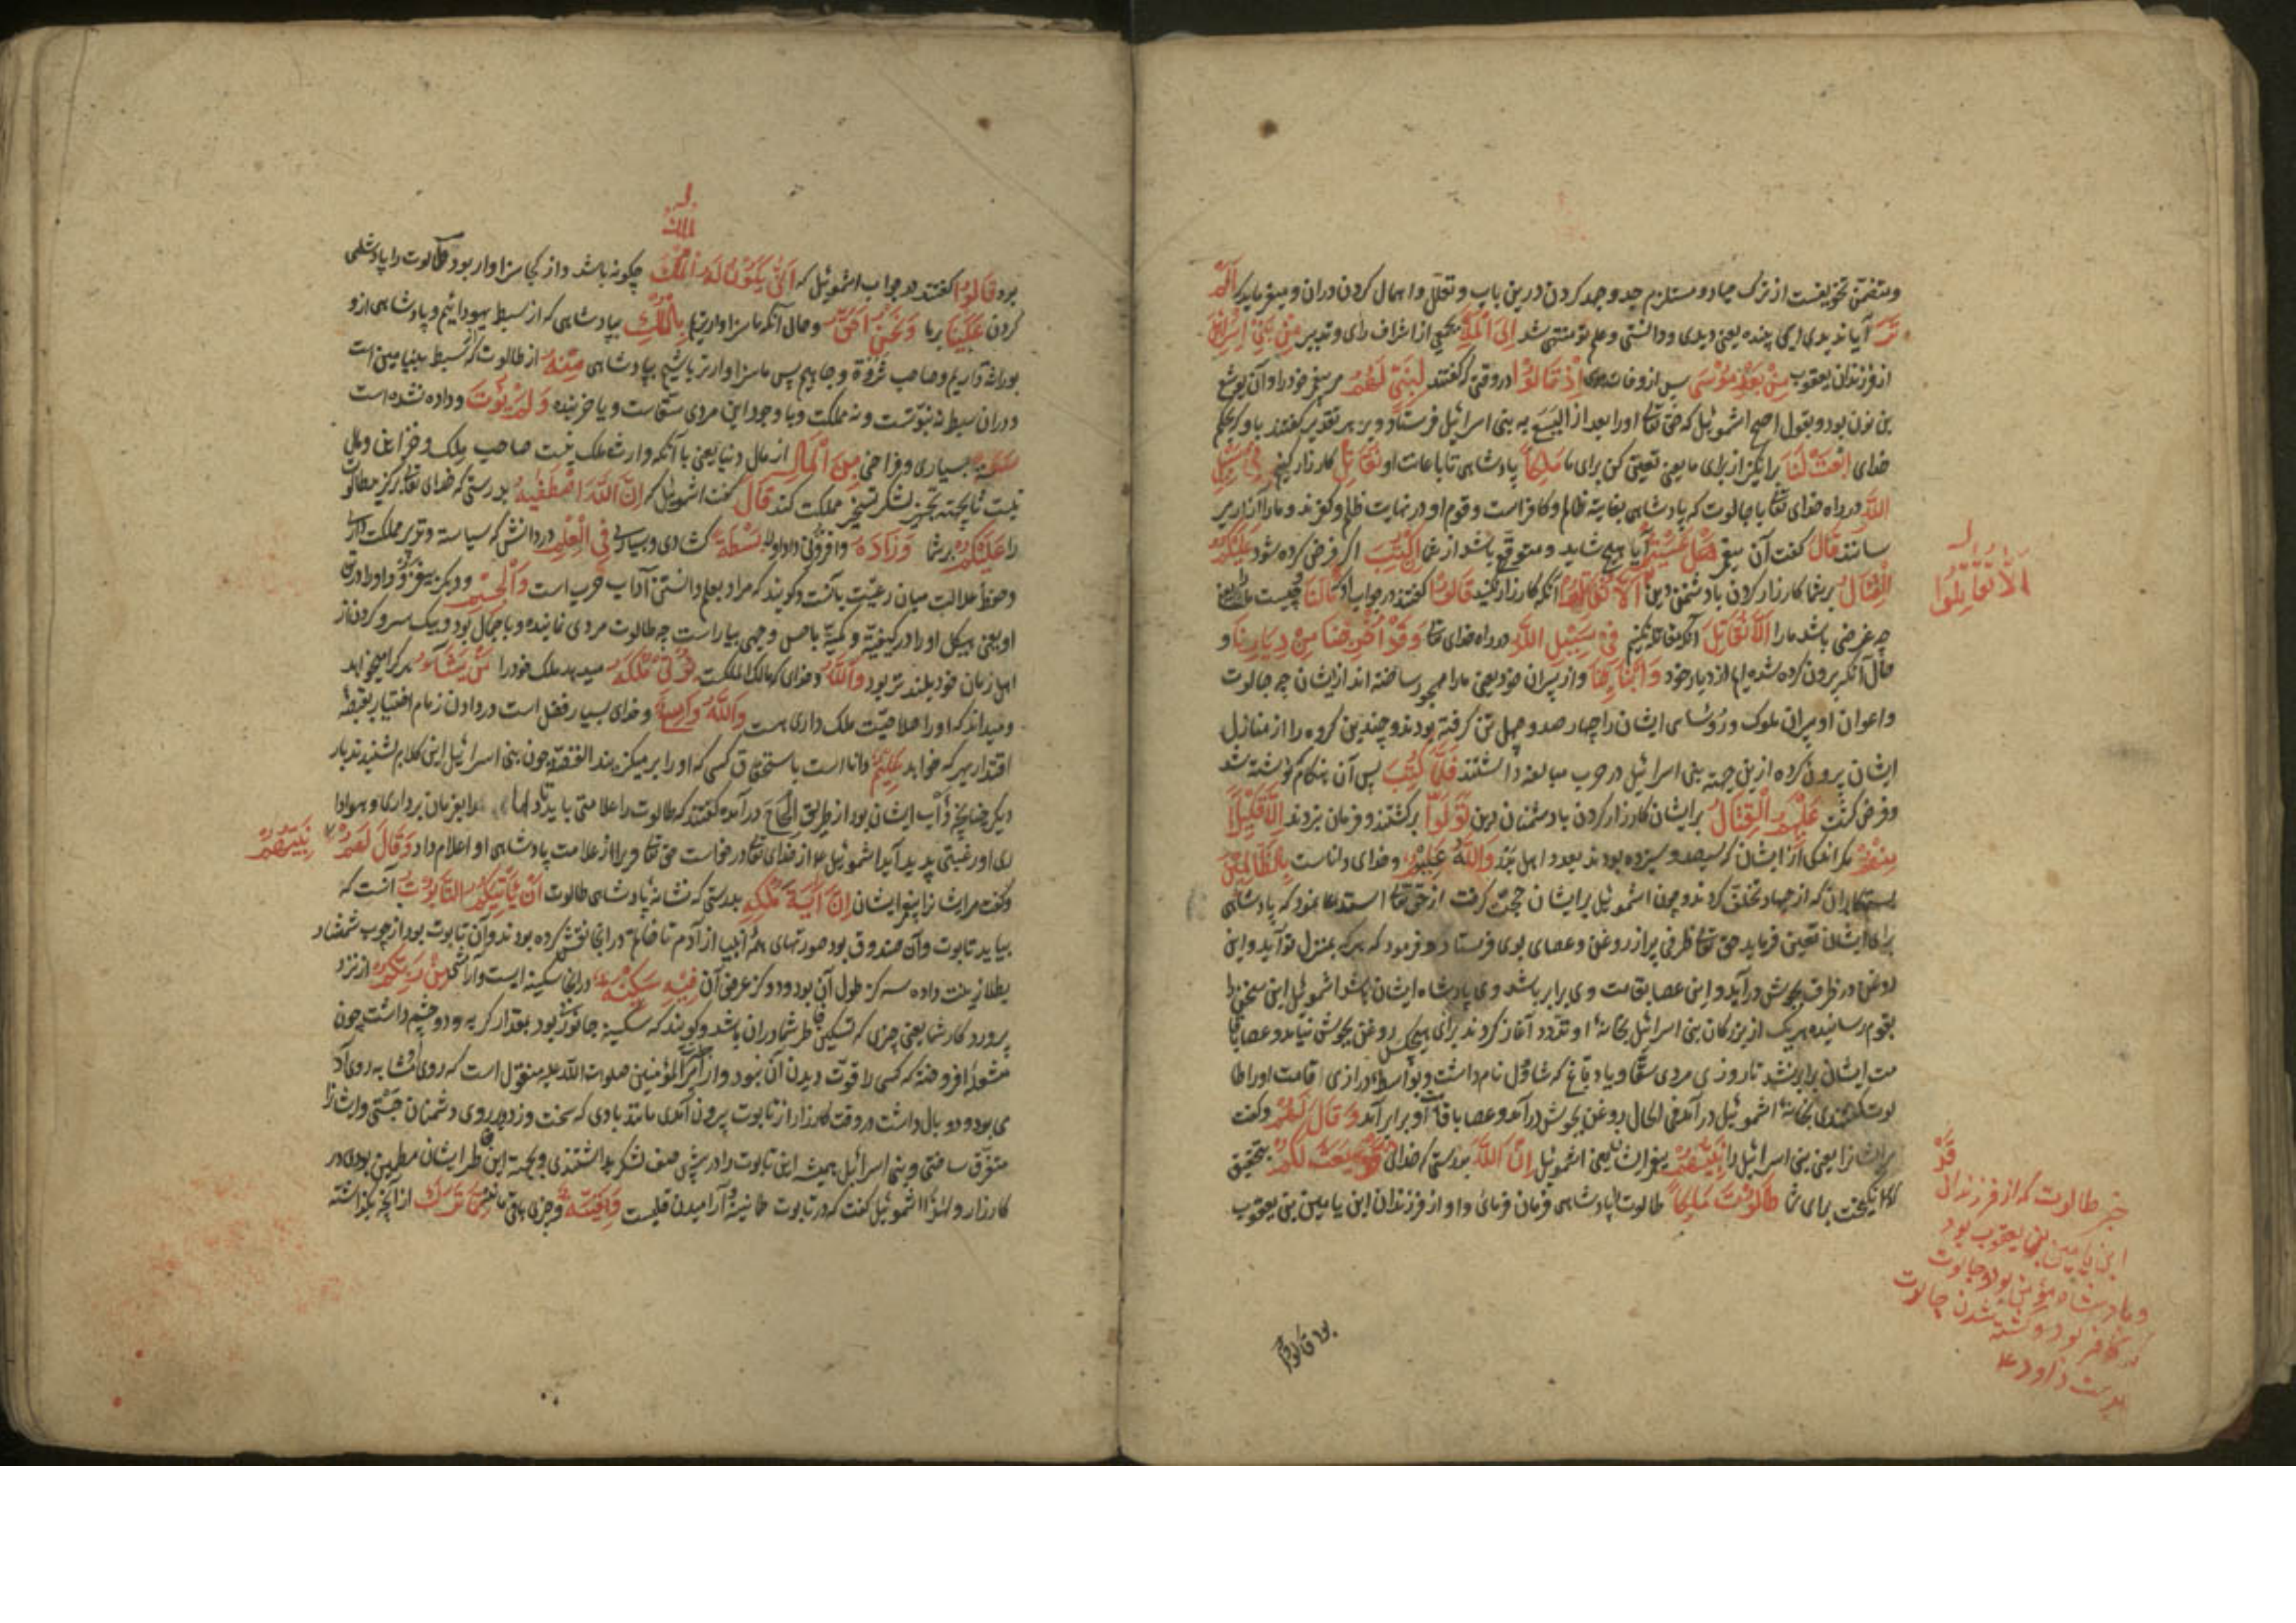 ومتضمن تخویفست از ترک جهاد و مستلزم جد و جهد کردن درین باب و تعلل و اهمال کردن دران و میفرماید که اَلَمْ
تَرَ آیا ندیدی ای بیننده یعنی دیدی و دانستی و علم تو منتهی شد اِلَی الْمَلَاِ بجمعی از اشراف رای و تدبیر مِنْ بَنِی اِسْرَائِیلَ
از فرزندان یعقوب مِنْ بَعْدِ مُوسَی پس از وفات موسی اِذْ قَالُوا در وقتی که گفتند لِنَبِیٍّ لَهُمُ مر پیغمبر خود را و آن یوشع
بن نون بود و بقول اصح اشموئیل که حق تعالی او را بعد از الیسع به بنی اسرائیل فرستاد و بر هر تقدیر گفتند باو که بحکم
خدای ابْعَثْ لَنَا برانگیز از برای ما یعنی تعیین کن برای ما مَلِکًا پادشاهی تا باعانت او نُقَاتِلْ کارزار کنیم فِی سَبِیلِ
اللّٰهِ در راه خدای تعالی با جالوت که پادشاهی بغایت ظالم و کافر است و قوم او در نهایت ظلم و کفرند و ما را آزار می
رسانند قَالَ گفت آن پیغمبر هَلْ عَسَیْتُمْ آیا هیچ شاید و متوقع باشد از شما اِنْ کُتِبَ اگر فرض کرده شود عَلَیْکُمُ
الْقِتَالُ بر شما کارزار کردن با دشمنان دین اَلَّا تُقَاتِلُوا آنکه کارزار نکنید قَالُوا گفتند در جواب او وَمَا لَنَا و چیست ما را یعنی
چه غرض باشد ما را اَلَّا نُقَاتِلَ آنکه مقاتله نکنیم فِی سَبِیلِ اللّٰهِ در راه خدای تعالی وَقَدْ اُخْرِجْنَا مِنْ دِیَارِنَا و
حال آنکه بیرون کرده شده ایم از دیار خود وَاَبْنَائِنَا و از پسران خود یعنی ما را مهجور ساخته اند از ایشان چه جالوت
و اعوان او پسران ملوک و رؤسای ایشان را چهار صد و چهل تن گرفته بودند و چندین گروه را از منازل
ایشان بیرون کرده ازین جهة بنی اسرائیل در حرب مبالغه داشتند فَلَمَّا کُتِبَ پس آن هنگام که نوشته شد
و فرض گشت عَلَیْهِمُ الْقِتَالُ بر ایشان کارزار کردن با دشمنان دین تَوَلَّوْا برگشتند و فرمان نبردند اِلَّا قَلِیلًا
مِنْهُمْ مگر اندکی از ایشان که سیصد و سیزده بودند بعدد اهل بدر وَاللّٰهُ عَلِیمٌ و خدای داناست بِالظَّالِمِینَ
بستمکاران که از جهاد تخلف کردند و چون اشموئیل بر ایشان حجت گرفت از حق تعالی استدعا نمود که پادشاهی
برای ایشان تعیین فرماید حق تعالی ظرفی پر از روغن و عصای بوی فرستاد و فرمود که هر که بمنزل تو آید و این
روغن در ظرف بجوش درآید و این عصا بقامت وی برابر باشد وی پادشاه ایشان باشد اشموئیل این سخن را
بقوم رسانید هر یک از بزرگان بنی اسرائیل بخانهٔ او تردد آغاز کردند برای هیچکس روغن بجوش نیامد و عصا با قا
مت ایشان برابر نشد تا روزی مردی سقا و یا دباغ که شاؤل نام داشت و بواسطهٔ درازی قامت او را طا
لوت گفتندی بخانهٔ اشموئیل درآمد فی الحال روغن بجوش درآمد و عصا با قامت او برابر آمد وَقَالَ لَهُمْ و گفت
مر ایشانرا یعنی بنی اسرائیل را نَبِیُّهُمْ پیغمبر ایشان یعنی اشموئیل اِنَّ اللّٰهَ بدرستی که خدای قَدْ بَعَثَ لَکُمْ بتحقیق
که برانگیخت برای شما طَالُوتَ مَلِکًا طالوت را پادشاهی فرمان فرمای و او از فرزندان ابن یامین بن یعقوب
اَلَّا تُقَاتِلُوا
قَدْ
خبر طالوت که از فرزندان
ابن یامین بن یعقوب بود
و پادشاه مؤمن بود و جالوت
که کافر بود و کشته شدن جالوت
بدست داود ع
بود قالوا
الملک
بود قَالُوا گفتند در جواب اشموئیل که اَنَّی یَکُونُ لَهُ الْمُلْکُ چگونه باشد و از کجا سزاوار بود طالوت را پادشاهی
کردن عَلَیْنَا بر ما وَنَحْنُ اَحَقُّ و حال آنکه ما سزاوارتریم بِالْمُلْکِ بپادشاهی که از سبط یهودائیم و پادشاهی ازو
بوراثه داریم و صاحب ثروة و جاهیم پس ما سزاوارتر باشیم بپادشاهی مِنْهُ از طالوت که از سبط بنیامین است
و در ان سبط نه نبوتست و نه مملکت و با وجود این مردی سقاست و یا خربنده وَلَمْ یُؤْتَ و داده نشده است
سَعَةً بسیاری و فراخی مِنَ الْمَالِ از مال دنیا یعنی با آنکه وارث ملک نیست صاحب ملک و خزاین و مال
نیست تا بجهة تجهیز لشکر تسخیر مملکت کند قَالَ گفت اشموئیل که اِنَّ اللّٰهَ اصْطَفَیهُ بدرستی که خدای تعالی برگزید طالوت
را عَلَیْکُمْ بر شما وَزَادَهُ و افزونی داد او را بَسْطَةً گشادی و بسیاری فِی الْعِلْمِ در دانش که سیاسة و تدبیر مملکت دانی
و حفظ عدالت میان رعیت بآنست و گویند که مراد بعلم دانستن آداب حرب است وَالْجِسْمِ و دیگر بیفزود او را در تن
او یعنی هیکل او را در کیفیة و کمیة با حسن وجهی بیاراست چه طالوت مردی نماینده و با جمال بود و بیک سر و گردن از
اهل زمان خود بلندتر بود وَاللّٰهُ و خدای که مالک الملکست یُؤْتِی مُلْکَهُ میدهد ملک خود را مَنْ یَشَاءُ هر کرا میخواهد
و میداند که او را صلاحیت ملک داری هست وَاللّٰهُ وَاسِعٌ و خدای بسیار فضل است در دادن زمام اختیار بقبضهٔ
اقتدار هر که خواهد عَلِیمٌ دانا است باستحقاق کسی که او را برمیگزیند القصه چون بنی اسرائیل این کلام شنیدند بار
دیگر چنانچه دأب ایشان بود از طریق الحاح درآمده گفتند که طالوت را علامتی باید تا ما را بفرمان برداری و هوادا
ری او رغبتی پدید آید اشموئیل ع از خدای تعالی درخواست حق تعالی ویرا از علامت پادشاهی او اعلام داد وَقَالَ لَهُمْ نَبِیُّهُمْ
و گفت مر ایشانرا پیغمبر ایشان اِنَّ آیَةَ مُلْکِهِ بدرستی که نشانهٔ پادشاهی طالوت اَنْ یَأْتِیَکُمُ التَّابُوتُ آنست که
بیاید تابوت و آن صندوق بود صورتهای همهٔ انبیا از آدم تا خاتم در آنجا نقش کرده بودند و آن تابوت بود از چوب شمشاد
بطلا زینت داده سه گز طول آن بود و دو گز عرض آن فِیهِ سَکِینَةٌ در آنجا سکینه ایست و آرامش مِنْ رَبِّکُمْ از نزد
پروردکار شما یعنی چیزی که تسکین خاطر شما دران باشد و گویند که سکینه جانوری بود بمقدار گربه و دو چشم داشت چون
مشعلهٔ افروخته که کسی را قوت دیدن آن نبود و از حضرت امیر المؤمنین صلوات اللّٰه علیه منقول است که روی او مشابه روی آد
می بود و دو بال داشت در وقت کارزار از تابوت بیرون آمدی مانند بادی که سخت وزد در روی دشمنان جستی و ایشانرا
متفرق ساختی و بنی اسرائیل همیشه این تابوت را در پیش صف لشکر بداشتندی و بجهة این خاطر ایشان مطمئن بودی در
کارزار و لهذا اشموئیل گفت که در تابوت طمانینه و آرامیدن قلبست وَبَقِیَّةٌ و چیزی باقی مانده مِمَّا تَرَکَ از آنچه بگذاشته